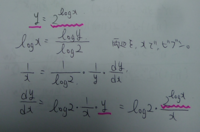 y = 2^{log x}
log x = \frac{log y}{log 2} 両辺を x で ビブン。
\frac{1}{x} = \frac{1}{log 2} · \frac{1}{y} · \frac{dy}{dx}
\frac{dy}{dx} = log 2 · \frac{1}{x} · y = log 2 · \frac{2^{log x}}{x}